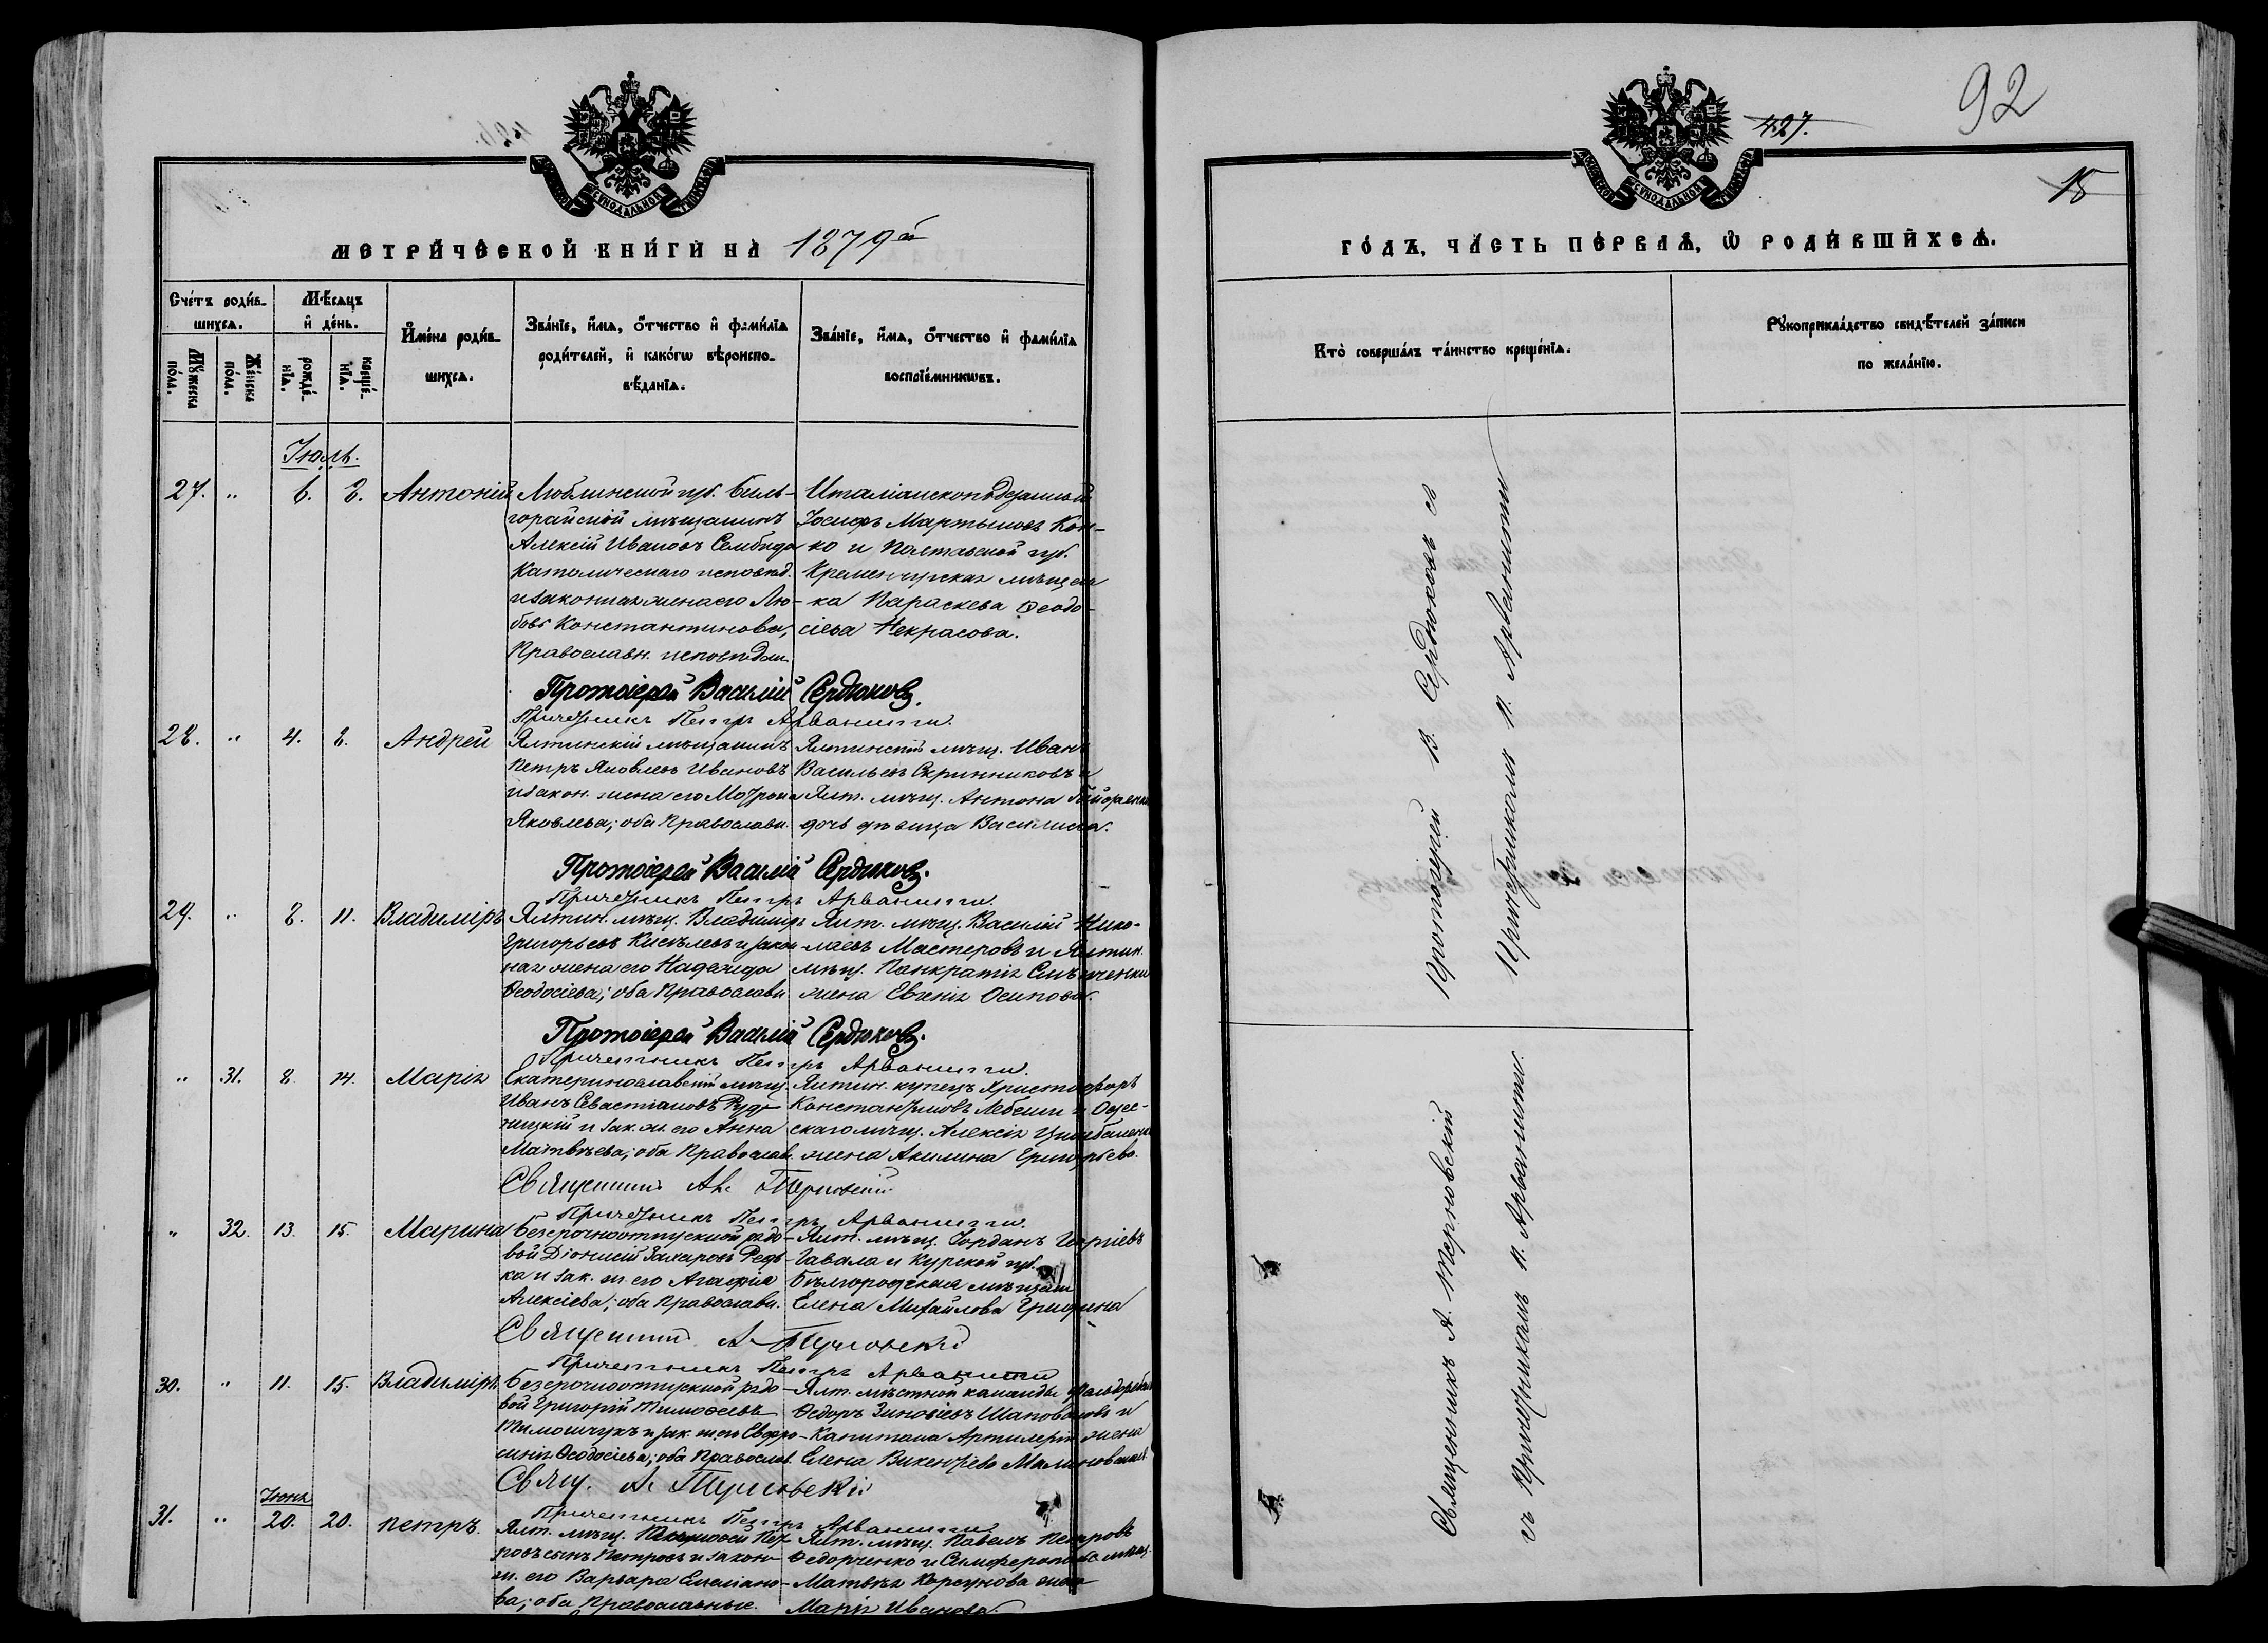 92
427.
15
МЕТРИ́ЧЕСКОЙ КНИ́ГИ НА 1879й
ГО́ДЪ, ЧА́СТЬ ПЕ́РВАѦ, Ѡ РОДИ́ВШИХСѦ.
Сче́тъ роди́в-
шихсѧ.
Мѣ́сѧцъ
и де́нь.
Мꙋ́жеска
по́ла.
Же́нска
по́ла.
рожде́-
нїѧ.
креще́-
нїѧ.
Имена̀ роди́в-
шихсѧ.
Зва́нїе, и́мѧ, о́тчество и фами́лїѧ
роди́телей, и како́гѡ вѣроиспо-
вѣ́данїѧ.
Зва́нїе, и́мѧ, о́тчество и фами́лїѧ
воспрїе́мникѡвъ.
Кто̀ соверша́лъ та́инство креще́нїѧ.
Рꙋкоприкла́дство свидѣ́телей за́писи
по жела́нїю.
Іюль.
27. " 6. 8. Антоній
Люблинской губ. Биль-
горайскій мѣщанинъ
Алексій Ивановъ Сембида
Католическаго исповѣд.
и законная жена его Лю-
бовь Константинова,
Православн. исповѣдан.
Іосифъ Мартыновъ Кон-
ко и Полтавской губ.
Кременчугская мѣщан
ка Параскева Ѳеодо-
сіева Некрасова.
Протоіерей Василій Сердюковъ.
Причетникъ Петръ Арванитти.
28. " 4. 8. Андрей
Ялтинскій мѣщанинъ
Петръ Яковлевъ Ивановъ
и закон. жена его Мотрона
Яковлева; оба Православн.
Ялтинскій мѣщ. Иванъ
Васильевъ Скринниковъ и
Ялт. мѣщ. Антона
дочь дѣвица Василиса.
Протоіерей Василій Сердюковъ.
Причетникъ Петръ Арванитти.
29. " 8. 11. Владиміръ
Ялтин. мѣщ. Владиміръ
Григорьевъ Киселевъ и закон
ная жена его Надежда
Ѳеодосіева; оба Православн
Ялт. мѣщ. Василій Нико-
лаевъ Мастеровъ и Ялтин.
мѣщ. Панкратія
жена Евгенія Осипова.
Протоіерей Василій Сердюковъ.
Причетникъ Петръ Арванитти.
" 31. 8. 14. Марія
Екатеринославскій мѣщ.
Иванъ Севастіановъ Руд-
ницкій и зак. ж. его Анна
Матвѣева; оба Православ.
Ялтин. купецъ Христофоръ
Константиновъ Лебеши и Одес-
скаго мѣщ. Алексія Цимбаленка
жена Акилина Григорьева.
Священникъ Ал. Терновскій
Причетникъ Петръ Арванитти.
" 32. 13. 15. Марина
Безсрочноотпускной рядо-
вой Діонисій Захаровъ Редь-
ка и зак. ж. его Агафія
Алексіева; оба Православн.
Ялт. мѣщ. Іорданъ Георгіевъ
Гавала и Курской губ.
Бѣлгородская мѣщан
Елена Михайлова
Священникъ А. Терновскій
Причетникъ Петръ Арванитти
30. " 11. 15. Владиміръ
Безсрочноотпускной рядо-
вой Григорій Тимоѳеевъ
Тимошчукъ и зак. ж. его Евфро-
синія Ѳеодосіева; оба Православ.
Ялт. мѣстной команды
Ѳедоръ Зиновіевъ Шаповаловъ и
Капитана Артилеріи жена
Елена Викентіева Малиновская
Свящ. А. Терновскій
Причетникъ Петръ Арванитти
Іюня
31. " 20. 20. Петръ.
Ялт. мѣщ. Пет
ровъ сынъ Петровъ и закон
ж. его Варвара Емеліано-
ва; оба Православные.
Ялт. мѣщ. Павелъ Петровъ
Ѳедорченко и Симферопольс. мѣщ.
Матвѣя Корсунова жена
Марія Иванова.
Протоіерей В. Сердюковъ съ
Причетникомъ П. Арванитти
Священникъ А. Терновскій
съ Причетникомъ П. Арванитти.